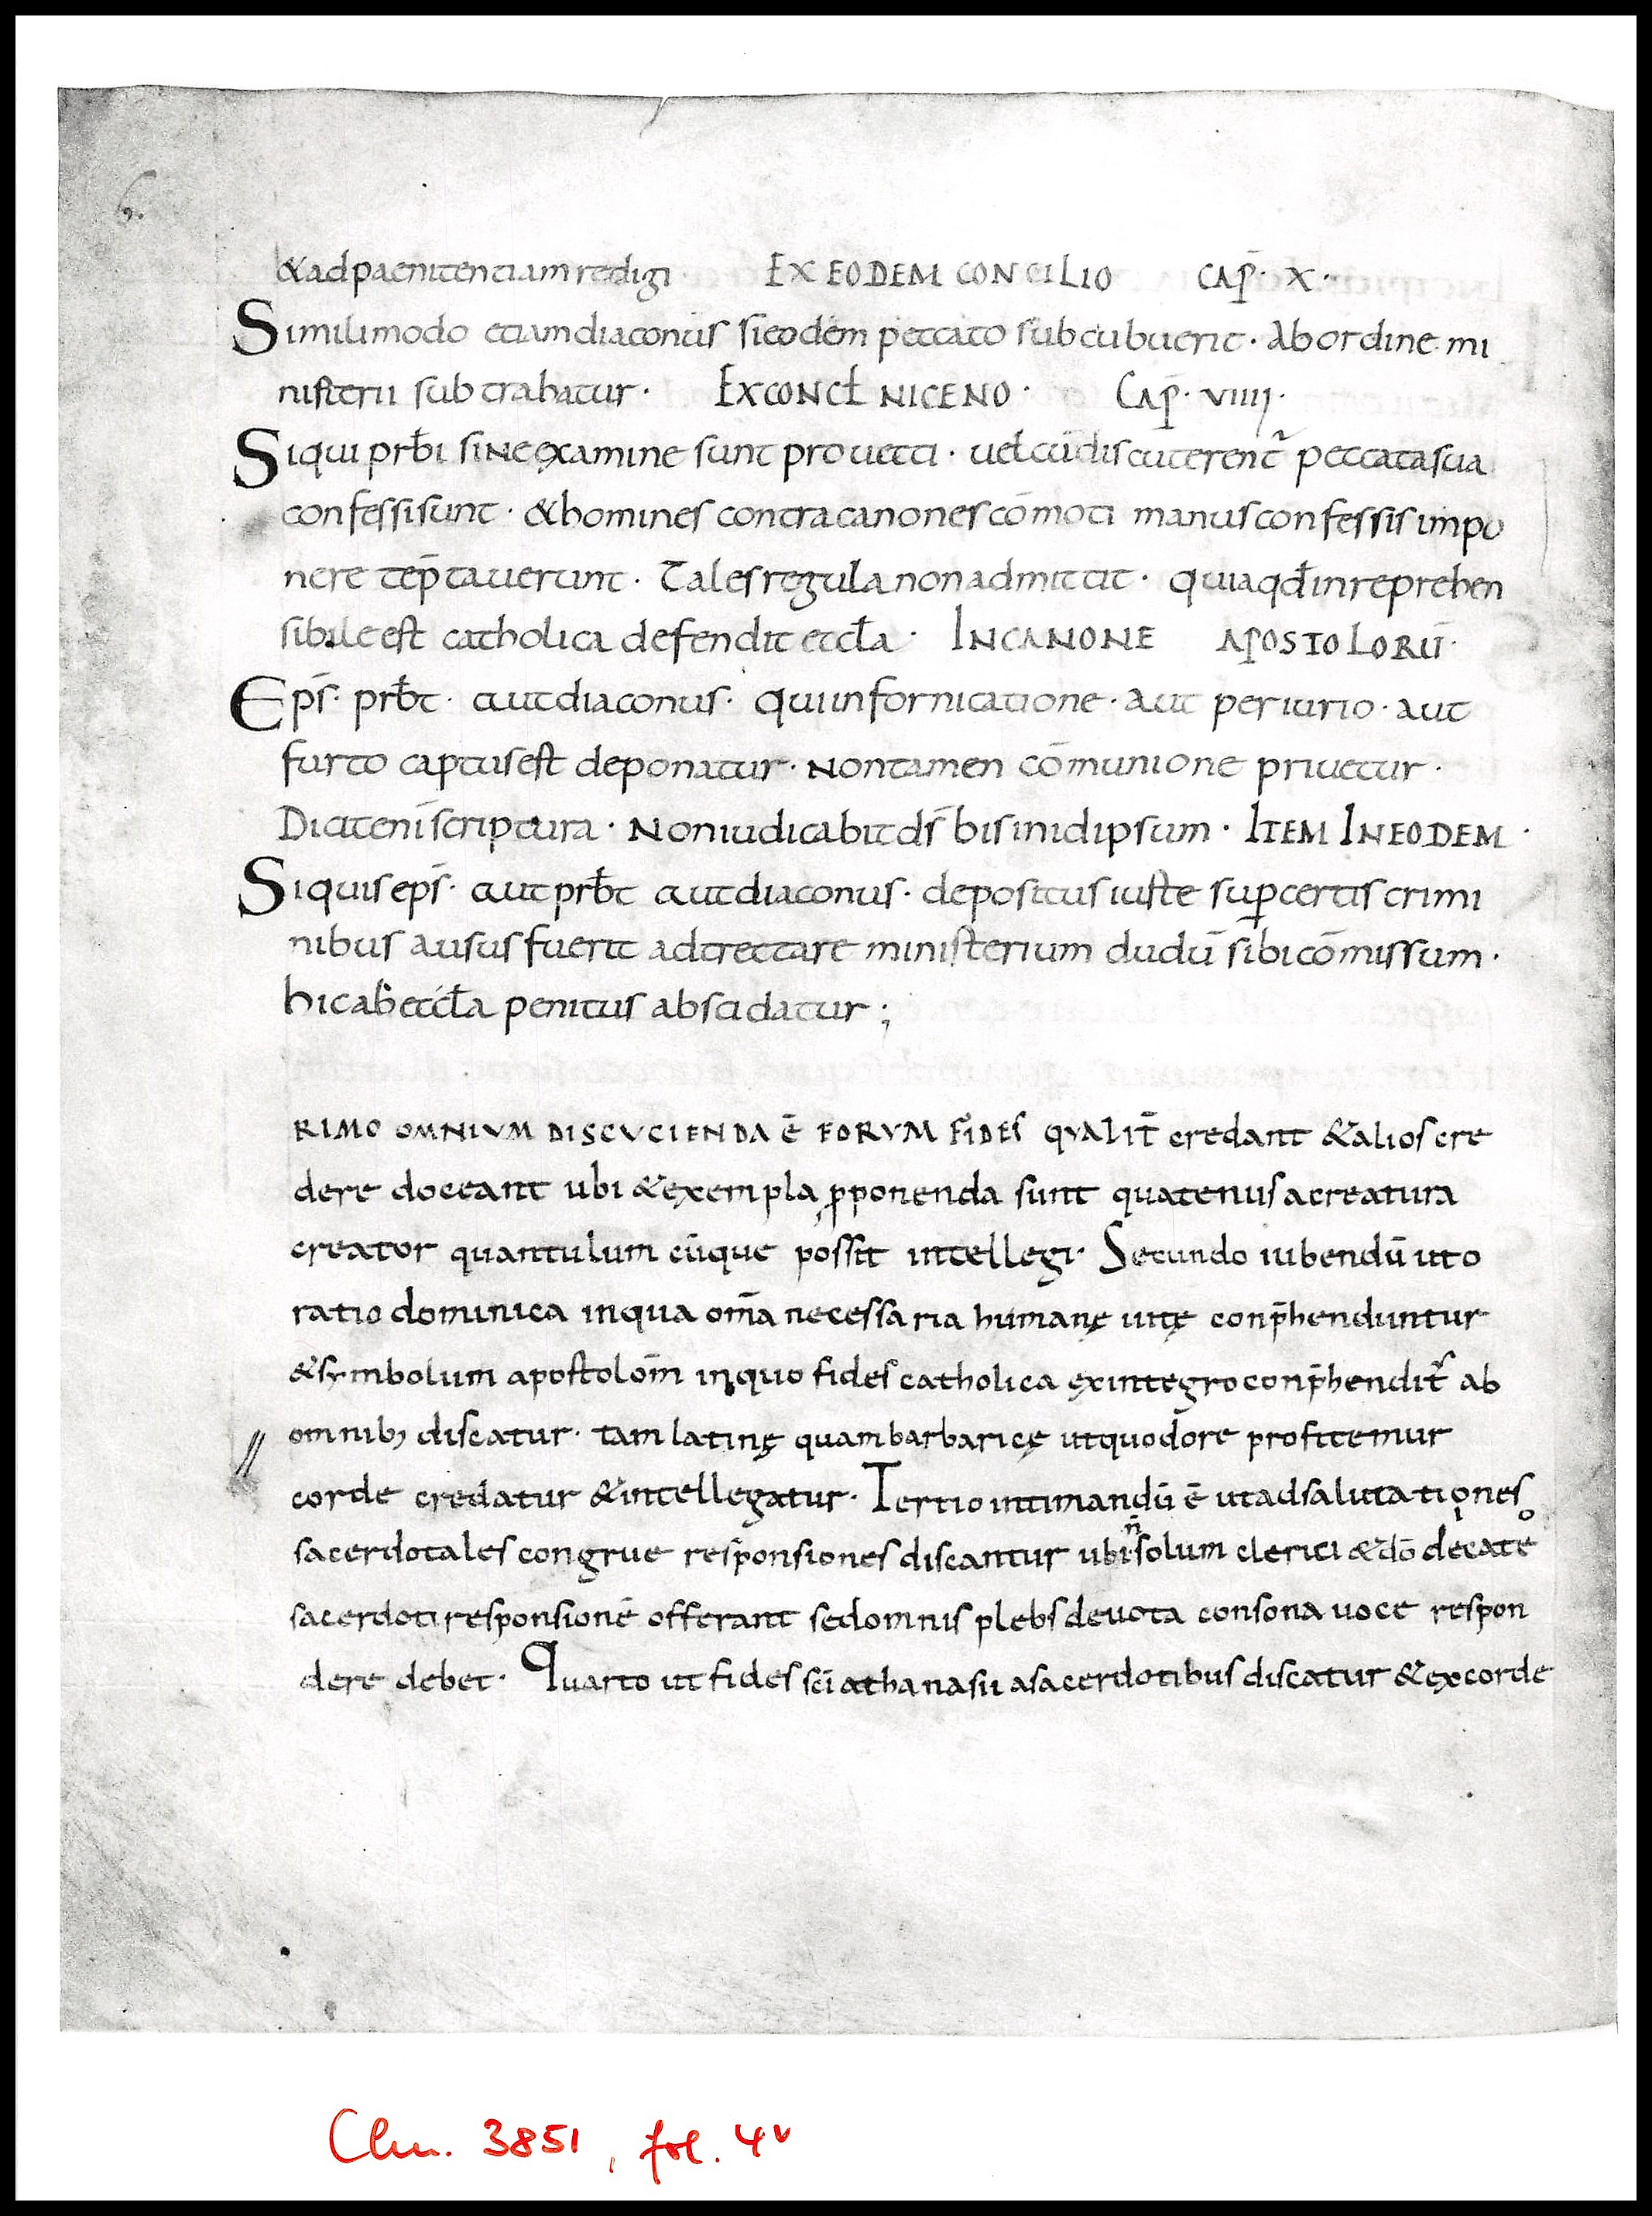 6.
& ad paenitentiam redigi EX EODEM CONCILIO CAP̄· X·
Similimodo etiam diaconus si eodem peccato subcubuerit· Ab ordine mi
nisterii subtrahatur· EX CONCŁ NICENO· CAP̄· VIIII·
Siqui prb̄i sine examine sunt provecti· vel cū discuterent᷑ peccata sua
confessi sunt· & homines contra canones cōmoti manus confessis impo
nere tēptaverunt· Tales regula non admittit· quia qđ inreprehen
sibile est catholica defendit eccła· IN CANONE APOSTOLORŪ·
Ep̄s· prb̄t· aut diaconus· qui in fornicatione· aut periurio· aut
furto captus est deponatur· Non tamen cōmunione privetur·
Dicit eni̅ scriptura· Non iudicabit d̄s bis in idipsum· ITEM IN EODEM·
Siquis ep̄s· aut prb̄t aut diaconus· depositus iuste suꝑ certis crimi
nibus ausus fuerit adtrectare ministerium dudū sibi cōmissum·
hic ab eccła penitus abscidatur;
RIMO OMNIVM DISCVCIENDA Ē EORVM FIDES QVALIT̄ credant & alios cre
dere doceant ubi & exempla ꝓponenda sunt quatenus a creatura
creator quantulumcūque possit intellegi· Secundo iubendū ut o
ratio dominica in qua om̄a necessaria humanę vitę conp̄henduntur
& symbolum apostolom̄ in quo fides catholica ex integro conp̄hendit᷑ ab
omnib; discatur· tam latinę quam barbaricę ut quod ore profitemur
corde credatur & intellegatur· Tertio intimandū ē ut ad salutationes
sacerdotales congrue responsiones discantur ubi n̄ solum clerici & dō dicatę
sacerdoti responsionē offerant sed omnis plebs devota consona voce respon
dere debet· Quarto ut fides sc̄i athanasii a sacerdotibus discatur & ex corde
Clm. 3851, fol. 4v